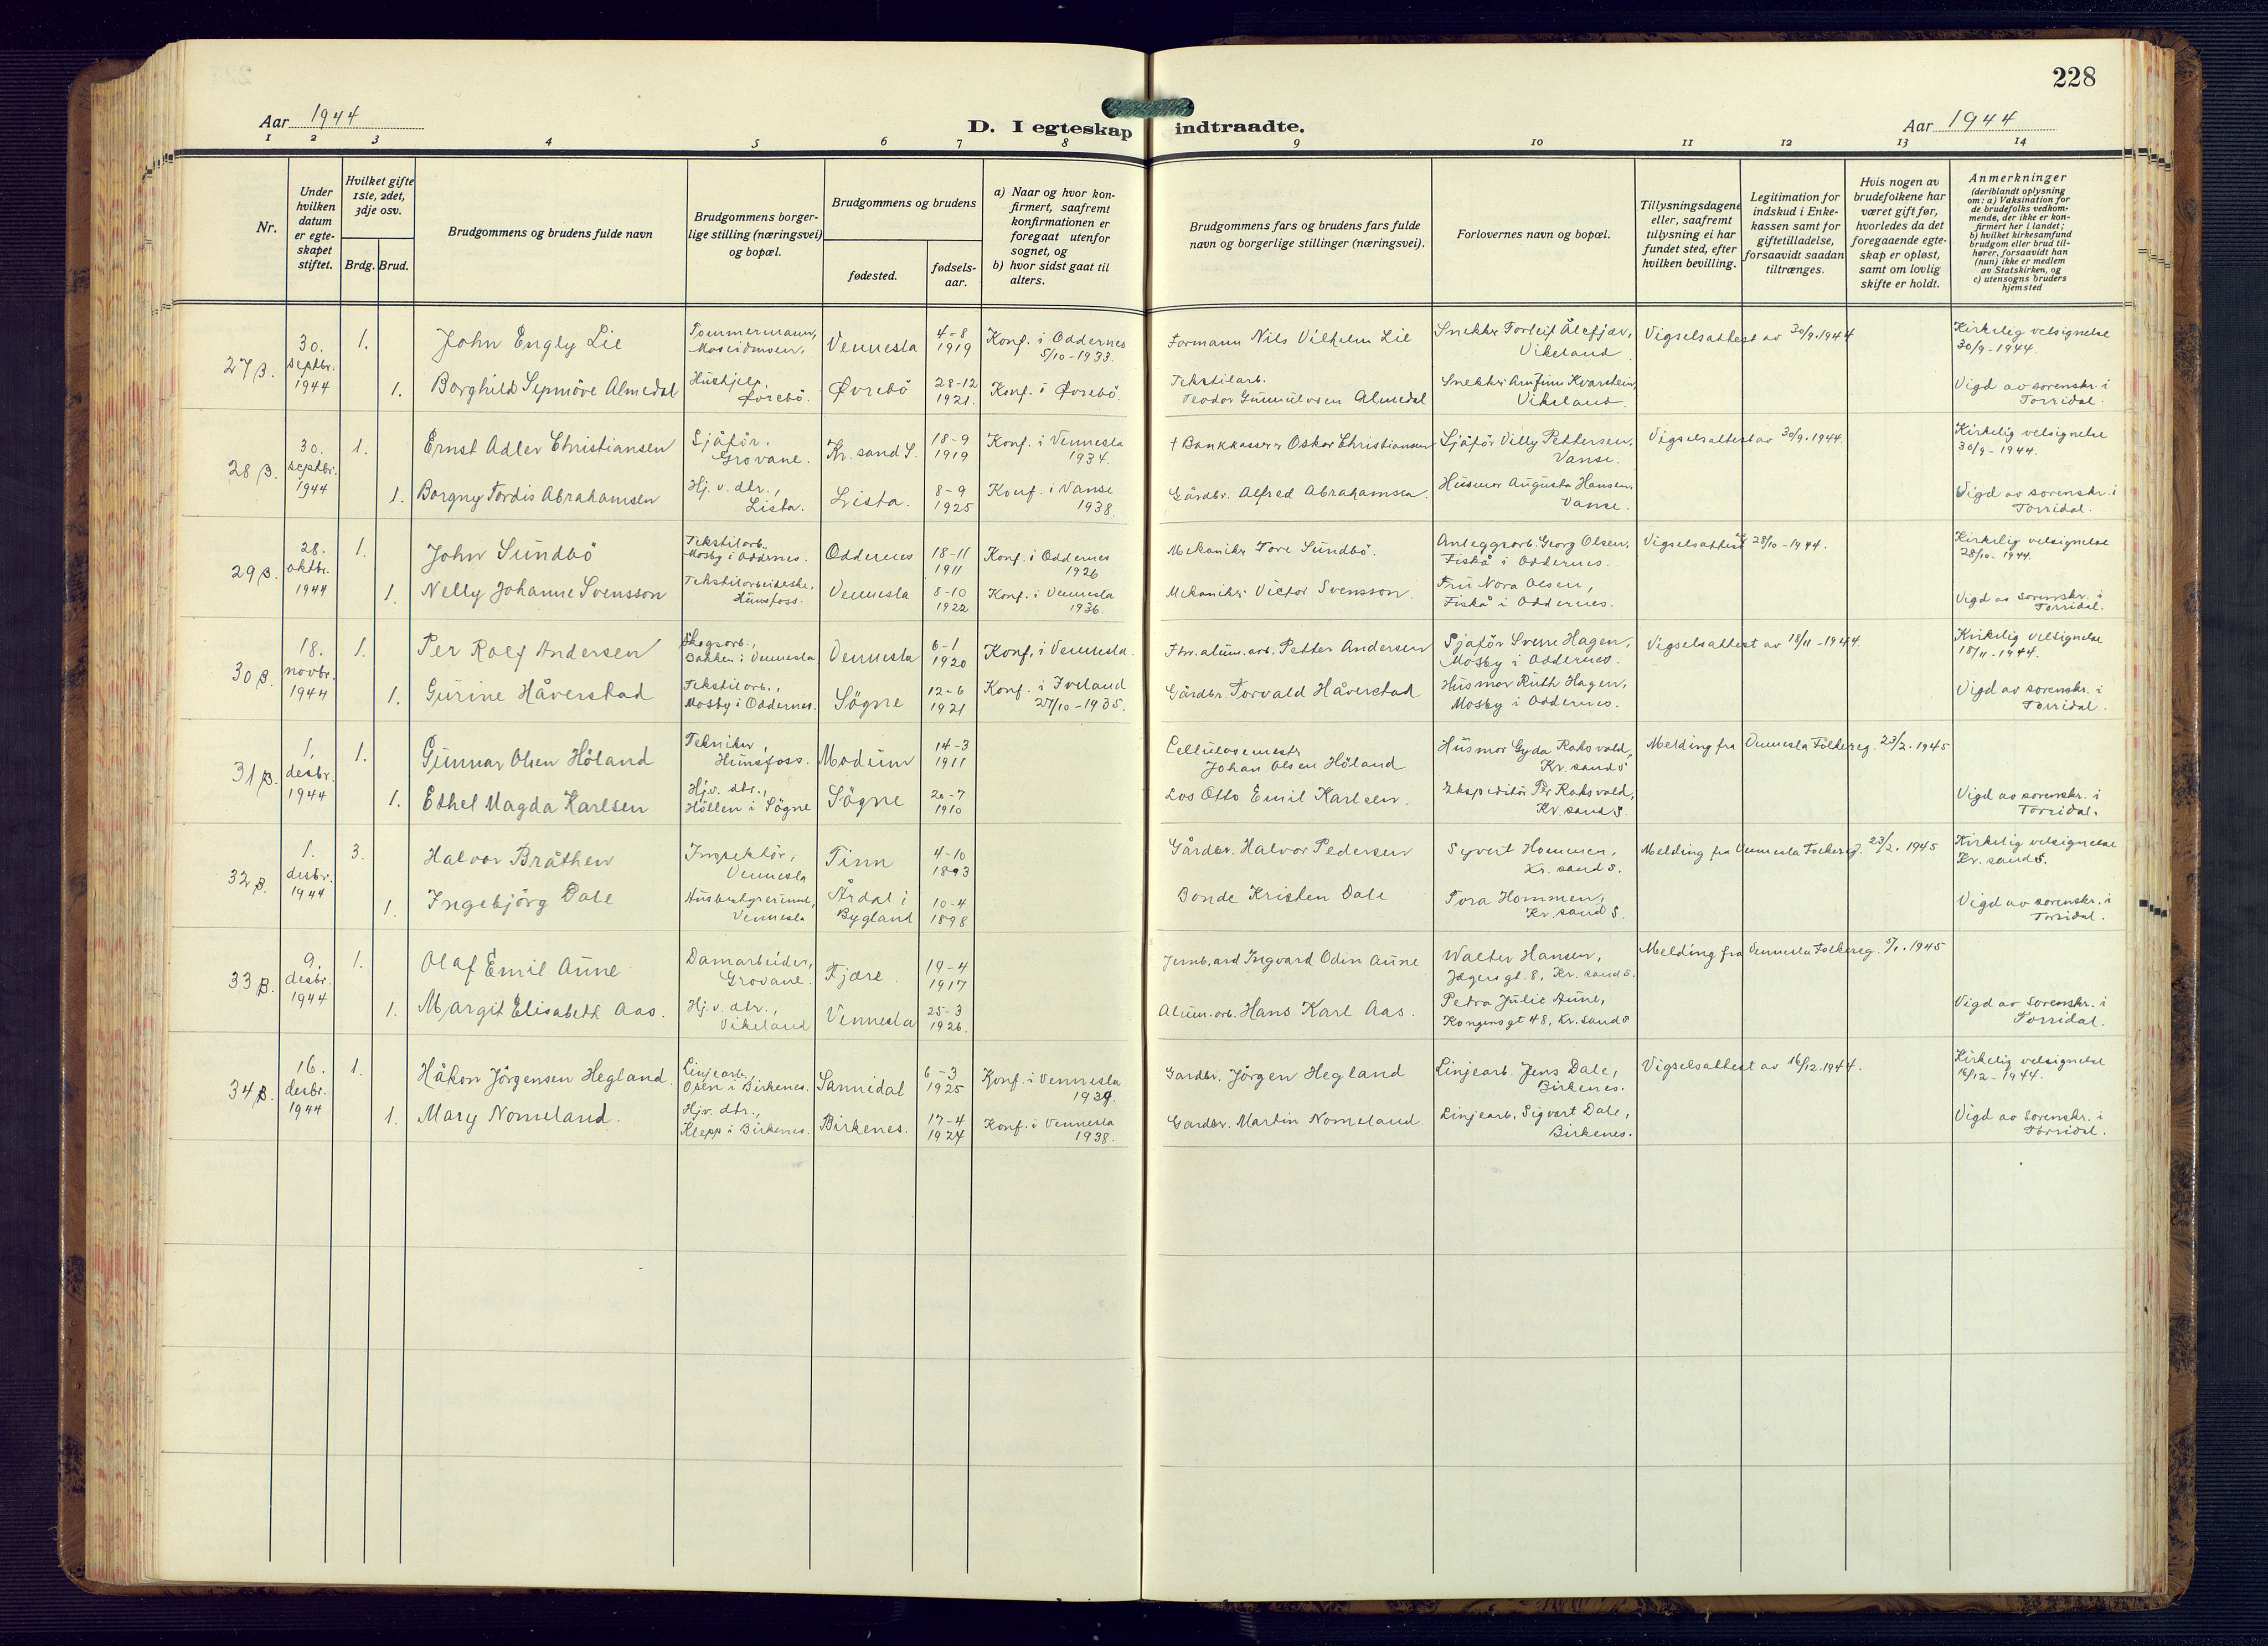 228
Aar 1944
D. I egteskap indtraadte.
Aar 1944
1 2 3 4 5 6 7 8 9 10 11 12 13 14
Nr.
Under hvilken datum er egteskapet stiftet.
Hvilket gifte 1ste, 2det, 3dje osv.
Brdg. Brud.
Brudgommens og brudens fulde navn
Brudgommens borgerlige stilling (næringsvei) og bopæl.
Brudgommens og brudens
fødested.
fødsels-aar.
a) Naar og hvor konfirmert, saafremt konfirmationen er foregaat utenfor sognet, og
b) hvor sidst gaat til alters.
Brudgommens fars og brudens fars fulde navn og borgerlige stillinger (næringsvei).
Forlovernes navn og bopæl.
Tillysningsdagene eller, saafremt tillysning ei har fundet sted, efter hvilken bevilling.
Legitimation for indskud i Enkekassen samt for giftetilladelse, forsaavidt saadan tiltrænges.
Hvis nogen av brudefolkene har været gift før, hvorledes da det foregaaende egteskap er opløst, samt om lovlig skifte er holdt.
Anmerkninger
(deriblandt oplysning om: a) Vaksination for de brudefolks vedkommende, der ikke er konfirmert her i landet; b) hvilket kirkesamfund brudgom eller brud tilhører, forsaavidt han (hun) ikke er medlem av Statskirken, og c) utensogns bruders hjemsted
27 B. 30. septbr. 1944
1. John Engly Lie Tømmermann, Vennesla 4-8 1919 Konf. i Oddernes 5/10-1933. Formann Nils Vilhelm Lie Snekker Torleif Ålefjær, Vikeland Vigselsattest av 30/9.1944 Kirkelig velsignelse 30/9-1944.
1. Borghild Sepmöre Almedal Hushjelp, Øvrebö. Øvrebö 28-12 1921. Konf. i Øvrebö. Tekstilarb. Teodor Gunnulvsen Almedal Snekker Arnfinn Kvarstein, Vikeland. Vigd av sorenskr. i Torridal.
28 B. 30. septbr. 1944
1. Ernst Adler Christiansen Sjåför. Grovane. Kr. sand S. 18-9 1919 Konf. i Vennesla 1934. † Bankkasserer Oskar Christiansen Sjåför Villy Pettersen, Vanse. Vigselsattest av 30/9.1944. Kirkelig velsignelse 30/9-1944.
1. Borgny Tordis Abrahamsen Hj. v. dtr., Lista. Lista. 8-9 1925 Konf. i Vanse 1938. Gårdbr. Alfred Abrahamsen. Husmor Augusta Hansen, Vanse. Vigd av sorenskr. i Torridal.
29 B. 28. oktbr. 1944
1. John Sundbö Tekstilarb. Mosby i Oddernes. Oddernes 18-11 1911 Konf. i Oddernes 1926 Mekaniker Tore Sundbö. Anleggsarb. Georg Olsen, Fiskå i Oddernes. Vigselsattest av 28/10-1944. Kirkelig velsignelse 28/10-1944.
1. Nelly Johanne Svensson Tekstilarbeiderske, Hunsfoss. Vennesla 8-10 1922 Konf. i Vennesla 1936. Mekaniker Victor Svensson. Fru Nora Olsen, Fiskå i Oddernes. Vigd av sorenskr. i Torridal.
30 B. 18. novbr. 1944
1. Per Rolf Andersen Skogsarb., Bakken i Vennesla Vennesla 6-1 1920 Konf. i Vennesla. Fhv. alum. arb. Petter Andersen Sjåför Sverre Hagen, Mosby i Oddernes. Vigselsattest av 18/11-1944. Kirkelig velsignelse 18/11-1944.
1. Gurine Håverstad Tekstilarb., Mosby i Oddernes. Sögne 12-6 1921 Konf. i Iveland 27/10-1935. Gårdbr. Torvald Håverstad Husmor Ruth Hagen, Mosby i Oddernes. Vigd av sorenskr. i Torridal.
31 B. 1. desbr. 1944
1. Gunnar Olsen Höland Tekniker, Hunsfoss. Modum 14-3 1911 Cellulosemestr Johan Olsen Höland Husmor Gyda Roksvold, Kr. sand S Melding fra Vennesla Folkereg. 23/2. 1945
1. Ethel Magda Karlsen Hj.v. dtr., Höllen i Sögne Sögne 20-7 1910 Los Otto Emil Karlsen. Ekspeditör Per Roksvold, Kr. sand S. Vigd av sorenskr. i Torridal.
32 B. 1. desbr. 1944
3. Halvor Bråthen Inspektör, Vennesla Tinn 4-10 1893 Gårdbr. Halvor Pedersen Syvert Hommen, Kr. sand S. Melding fra Vennesla Folkereg. 23/2. 1945 Kirkelig velsignelse Kr. sand S.
1. Ingebjörg Dale Husbestyrerinne, Vennesla Årdal i Bygland 10-4 1898 Bonde Kristen Dale Tora Hommen, Kr. sand S. Vigd av sorenskr. i Torridal.
33 B. 9. desbr. 1944
1. Olaf Emil Aune Damarbeider, Grovane. Fjære 19-4 1917 Jernb. arb Ingvard Odin Aune Walter Hansen, Jegersgt. 8, Kr. sand S. Melding fra Vennesla Folkereg. 5/1. 1945
1. Margit Elisabeth Aas. Hj. v. dtr., Vikeland Vennesla 25-3 1926. Alum. arb. Hans Karl Aas. Petra Julie Aune, Kongensgt 48, Kr. sand S Vigd av Sorenskr. i Torridal.
34 B. 16. desbr. 1944
1. Håkon Jörgensen Hegland. Linjearb., Oven i Birkenes. Sannidal 6-3 1925 Konf. i Vennesla 1939. Gardbr. Jörgen Hegland Linjearb. Jens Dale, Birkenes. Vigselsattest av 16/12.1944. Kirkelig velsignelse 16/12-1944.
1. Mary Nomeland. Hjv. dtr., Klepp i Birkenes. Birkenes. 17-4 1924 Konf. i Vennesla 1938. Gardbr. Martin Nomeland. Linjearb. Sigvart Dale, Birkenes. Vigd av Sorenskr. i Torridal.